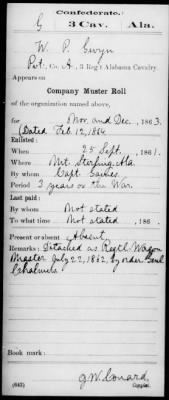 Confederate.
G 3 Cav. Ala.
W. P. Gwyn
Pvt., Co. A, 3 Reg't Alabama Cavalry.
Appears on
Company Muster Roll
of the organization named above,
for Nov. and Dec., 1863.
(Dated Feb. 12, 1864
Enlisted:
When 25 Sept., 1861.
Where Mt. Sterling, Ala.
By whom Capt.
Period 3 years or the War.
Last paid:
By whom Not stated
To what time Not stated, 186 .
Present or absent Absent
Remarks: Detached as Regtl Wagon
Master July 22, 1862, by order Genl
Chalmers
Book mark:
(642) G. W. Conard
Copyist.